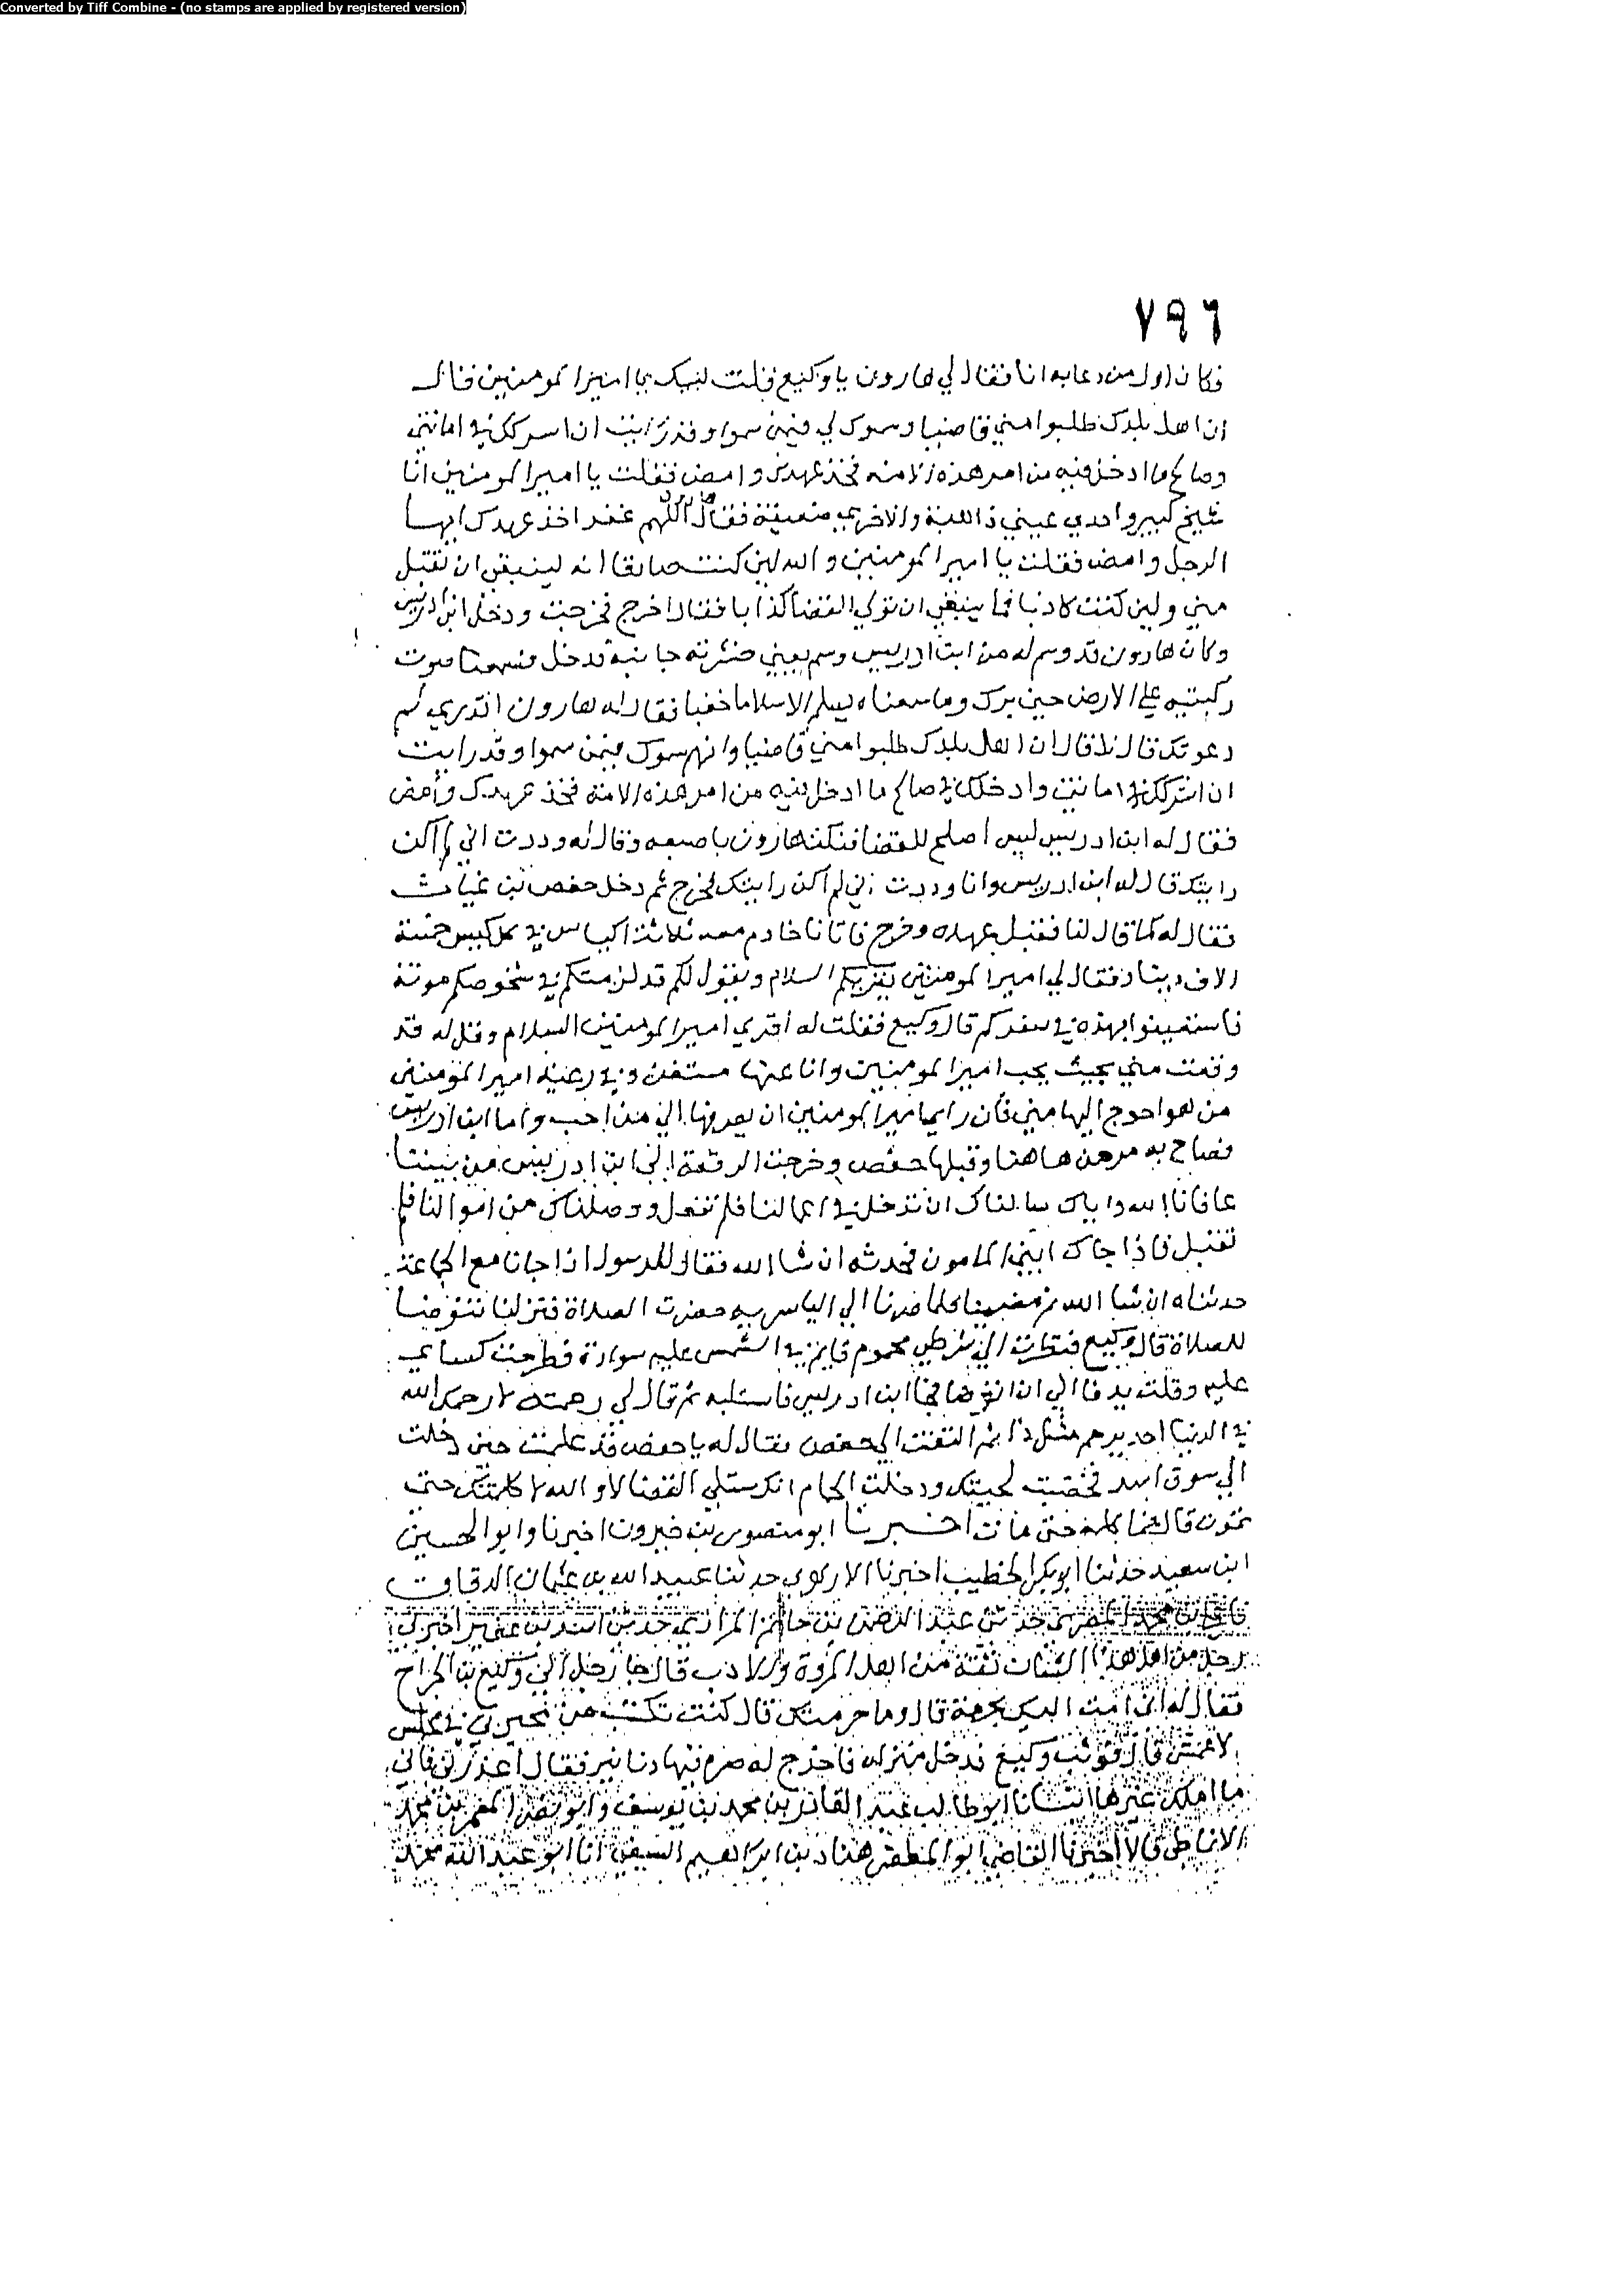 Converted by Tiff Combine - (no stamps are applied by registered version)
٧٩٦
فكان اول من دعا به انا فقال لي هارون يا وكيع قلت لبيك يا امير المومنين قال
ان اهل بلدك طلبوا مني قاضيا وسموك لي فيمن سموا وقد رايت ان اشركك في امانتي
وصالح ما ادخل فيه من امر هذه الامة فخذ عهدك وامض فقلت يا امير المومنين انا
شيخ كبير واحدي عيني ذاهبة والاخري ضعيفة فقال هارون اللهم غفرا خذ عهدك ايها
الرجل وامض فقلت يا امير المومنين والله لين كنت صادقا انه لينبغي ان تقبل
مني ولين كنت كاذبا فما ينبغي ان تولي القضا كذابا فقال اخرج فخرجت ودخل ابن ادريس
وكان هارون قد وسم له من ابن ادريس وسم يعني خشونة جانبه فدخل فسمعنا صوت
ركبتيه علي الارض حين برك وما سمعناه يسلم الا سلاما خفيا فقال له هارون اتدري لم
دعوتك قال لا قال ان اهل بلدك طلبوا مني قاضيا وانهم سموك فيمن سموا وقد رايت
ان اشركك في امانتي وادخلك في صالح ما ادخل فيه من امر هذه الامة فخذ عهدك وامض
فقال له ابن ادريس ليس اصلح للقضا فنكت هارون باصبعه وقال له وددت اني لم اكن
رايتك قال له ابن ادريس وانا وددت اني لم اكن رايتك فخرج ثم دخل حفص بن غياث
فقال له كما قال لنا فقبل عهده وخرج فاتانا خادم معه ثلاثة اكياس في كل كيس خمسة
الاف دينار فقال لي امير المومنين يقريكم السلام ويقول لكم قد لزمتكم في شخوصكم مونة
فاستعينوا بهذه في سفركم قال وكيع فقلت له اقري امير المومنين السلام وقل له قد
وقعت مني بحيث يحب امير المومنين وانا عنها مستغن وفي رعية امير المومنين
من هو احوج اليها مني فان راي امير المومنين ان يصرفها الي من احب واما ابن ادريس
فصاح به مر من هاهنا وقبلها حفص وخرجت الرقعة الي ابن ادريس من بيننا
عافانا الله واياك سالناك ان تدخل في اعمالنا فلم تفعل ووصلناك من اموالنا فلم
تقبل فاذا جاك ابني المامون فحدثه ان شا الله فقال للرسول اذا جانا مع الجماعة
حدثناه ان شا الله ثم مضينا فلما صرنا الي الياسرية حضرت الصلاة فنزلنا نتوضا
للصلاة قال وكيع فنظرت الي شرطي محموم نايم في الشمس عليه سواده فطرحت كساي
عليه وقلت يدفا الي ان اتوضا فجا ابن ادريس فاستلبه ثم قال لي رحمته لا رحمك الله
في الدنيا احد يرحم مثل ذا ثم التفت الي حفص فقال له يا حفص قد علمت حين دخلت
الي سوق اسد فخضبت لحيتك ودخلت الحمام انك ستلي القضا لا والله لا كلمتك حتي
تموت قال فما كلمه حتي مات اخبرنا ابو منصور بن خيرون اخبرنا وابو الحسين
ابن سعيد حدثنا ابو بكر الخطيب اخبرنا الازهري حدثنا عبيد الله بن عثمان الدقاق
محمد المصري حدثني عبد الرحمن بن حاتم المرادي حدثني اسد بن عفير اخبرني
رجل من اهل هذا الشان ثقة من اهل المروة والادب قال جا رجل الي وكيع بن الجراح
فقال له اني امت اليك بحرمة قال وما حرمتك قال كنت تكتب من محبرتي في مجلس
الاعمش قال فوثب وكيع فدخل منزله فاخرج له صرة فيها دنانير فقال اعذرني فاني
ما املك غيرها انبانا ابو طالب عبد القادر بن محمد بن يوسف وابو نصر المعمر بن محمد
الانماطي قالا اخبرنا القاضي ابو المظفر هناد بن ابراهيم النسفي انا ابو عبد الله محمد